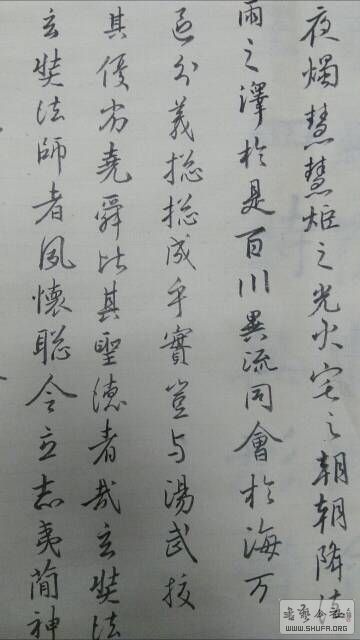 夜燭慧慧炬之光火宅之朝朝降法
雨之澤於是百川異流同會於海万
區分義揔揔成乎實豈与湯武挍
其優劣堯舜比其聖德者哉玄奘法
玄奘法師者夙懷聡令立志夷簡神
WWW.SHUFA.ORG